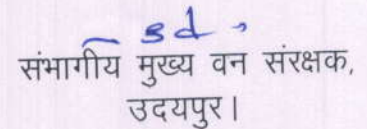 sd
संभागीय मुख्य वन संरक्षक,
उदयपुर।